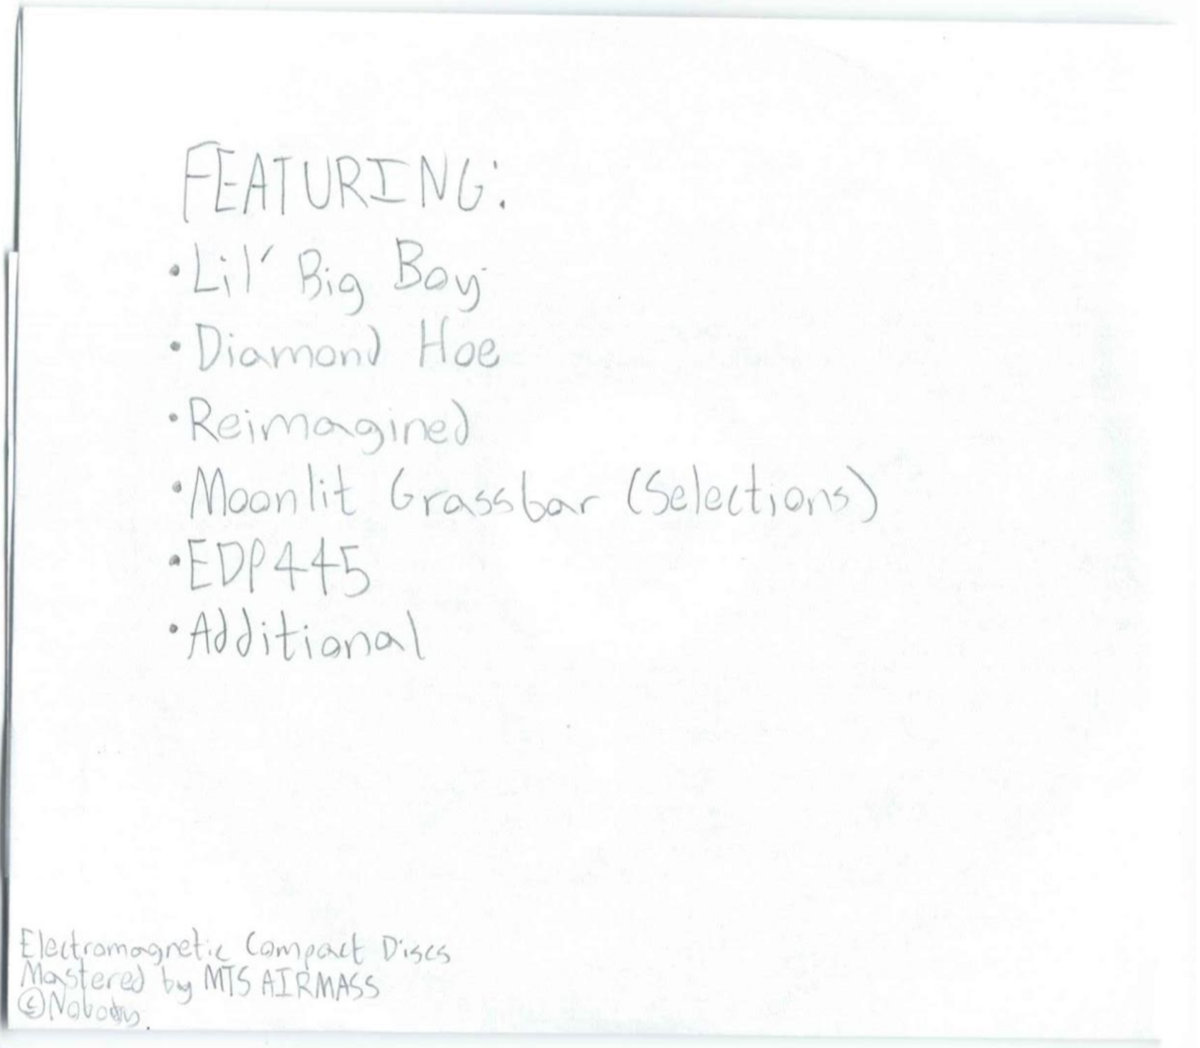 FEATURING:
•Lil' Big Boy
•Diamond Hoe
•Reimagined
•Moonlit Grassbar (Selections)
•EDP445
•Additional
Electromagnetic Compact Discs
Mastered by MTS AIRMASS
©Nobody.